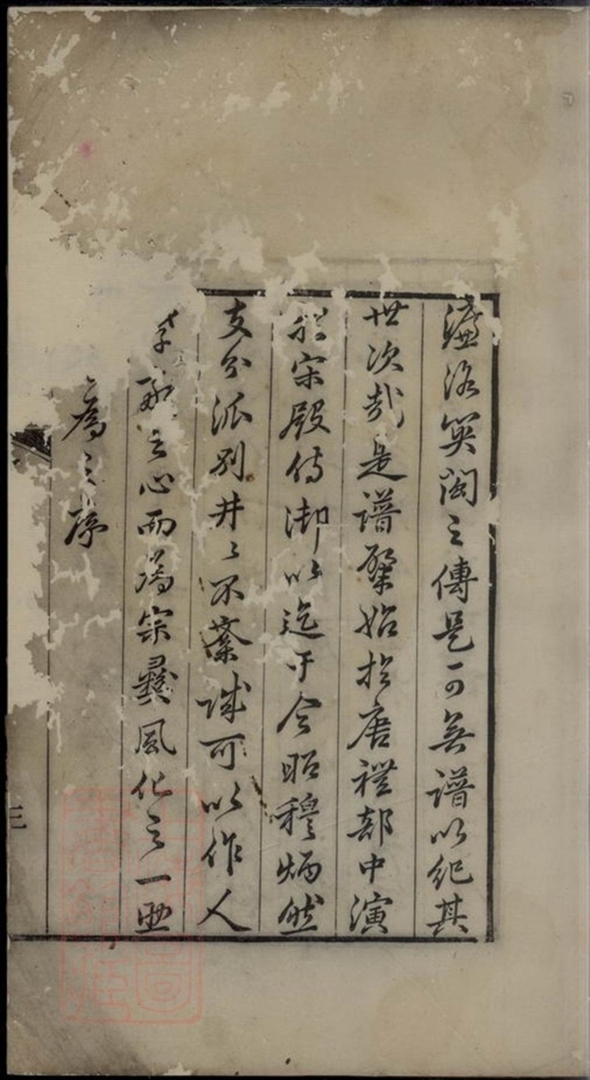 濂洛關閩之傳是可無譜以紀其
世次哉是譜肇始於唐禮部中演
於宋殿侍御以迄于今昭穆炳然
支分派別井〻不紊誠可以作人
孝敬之心而為宗彝風化之一
為之序
三